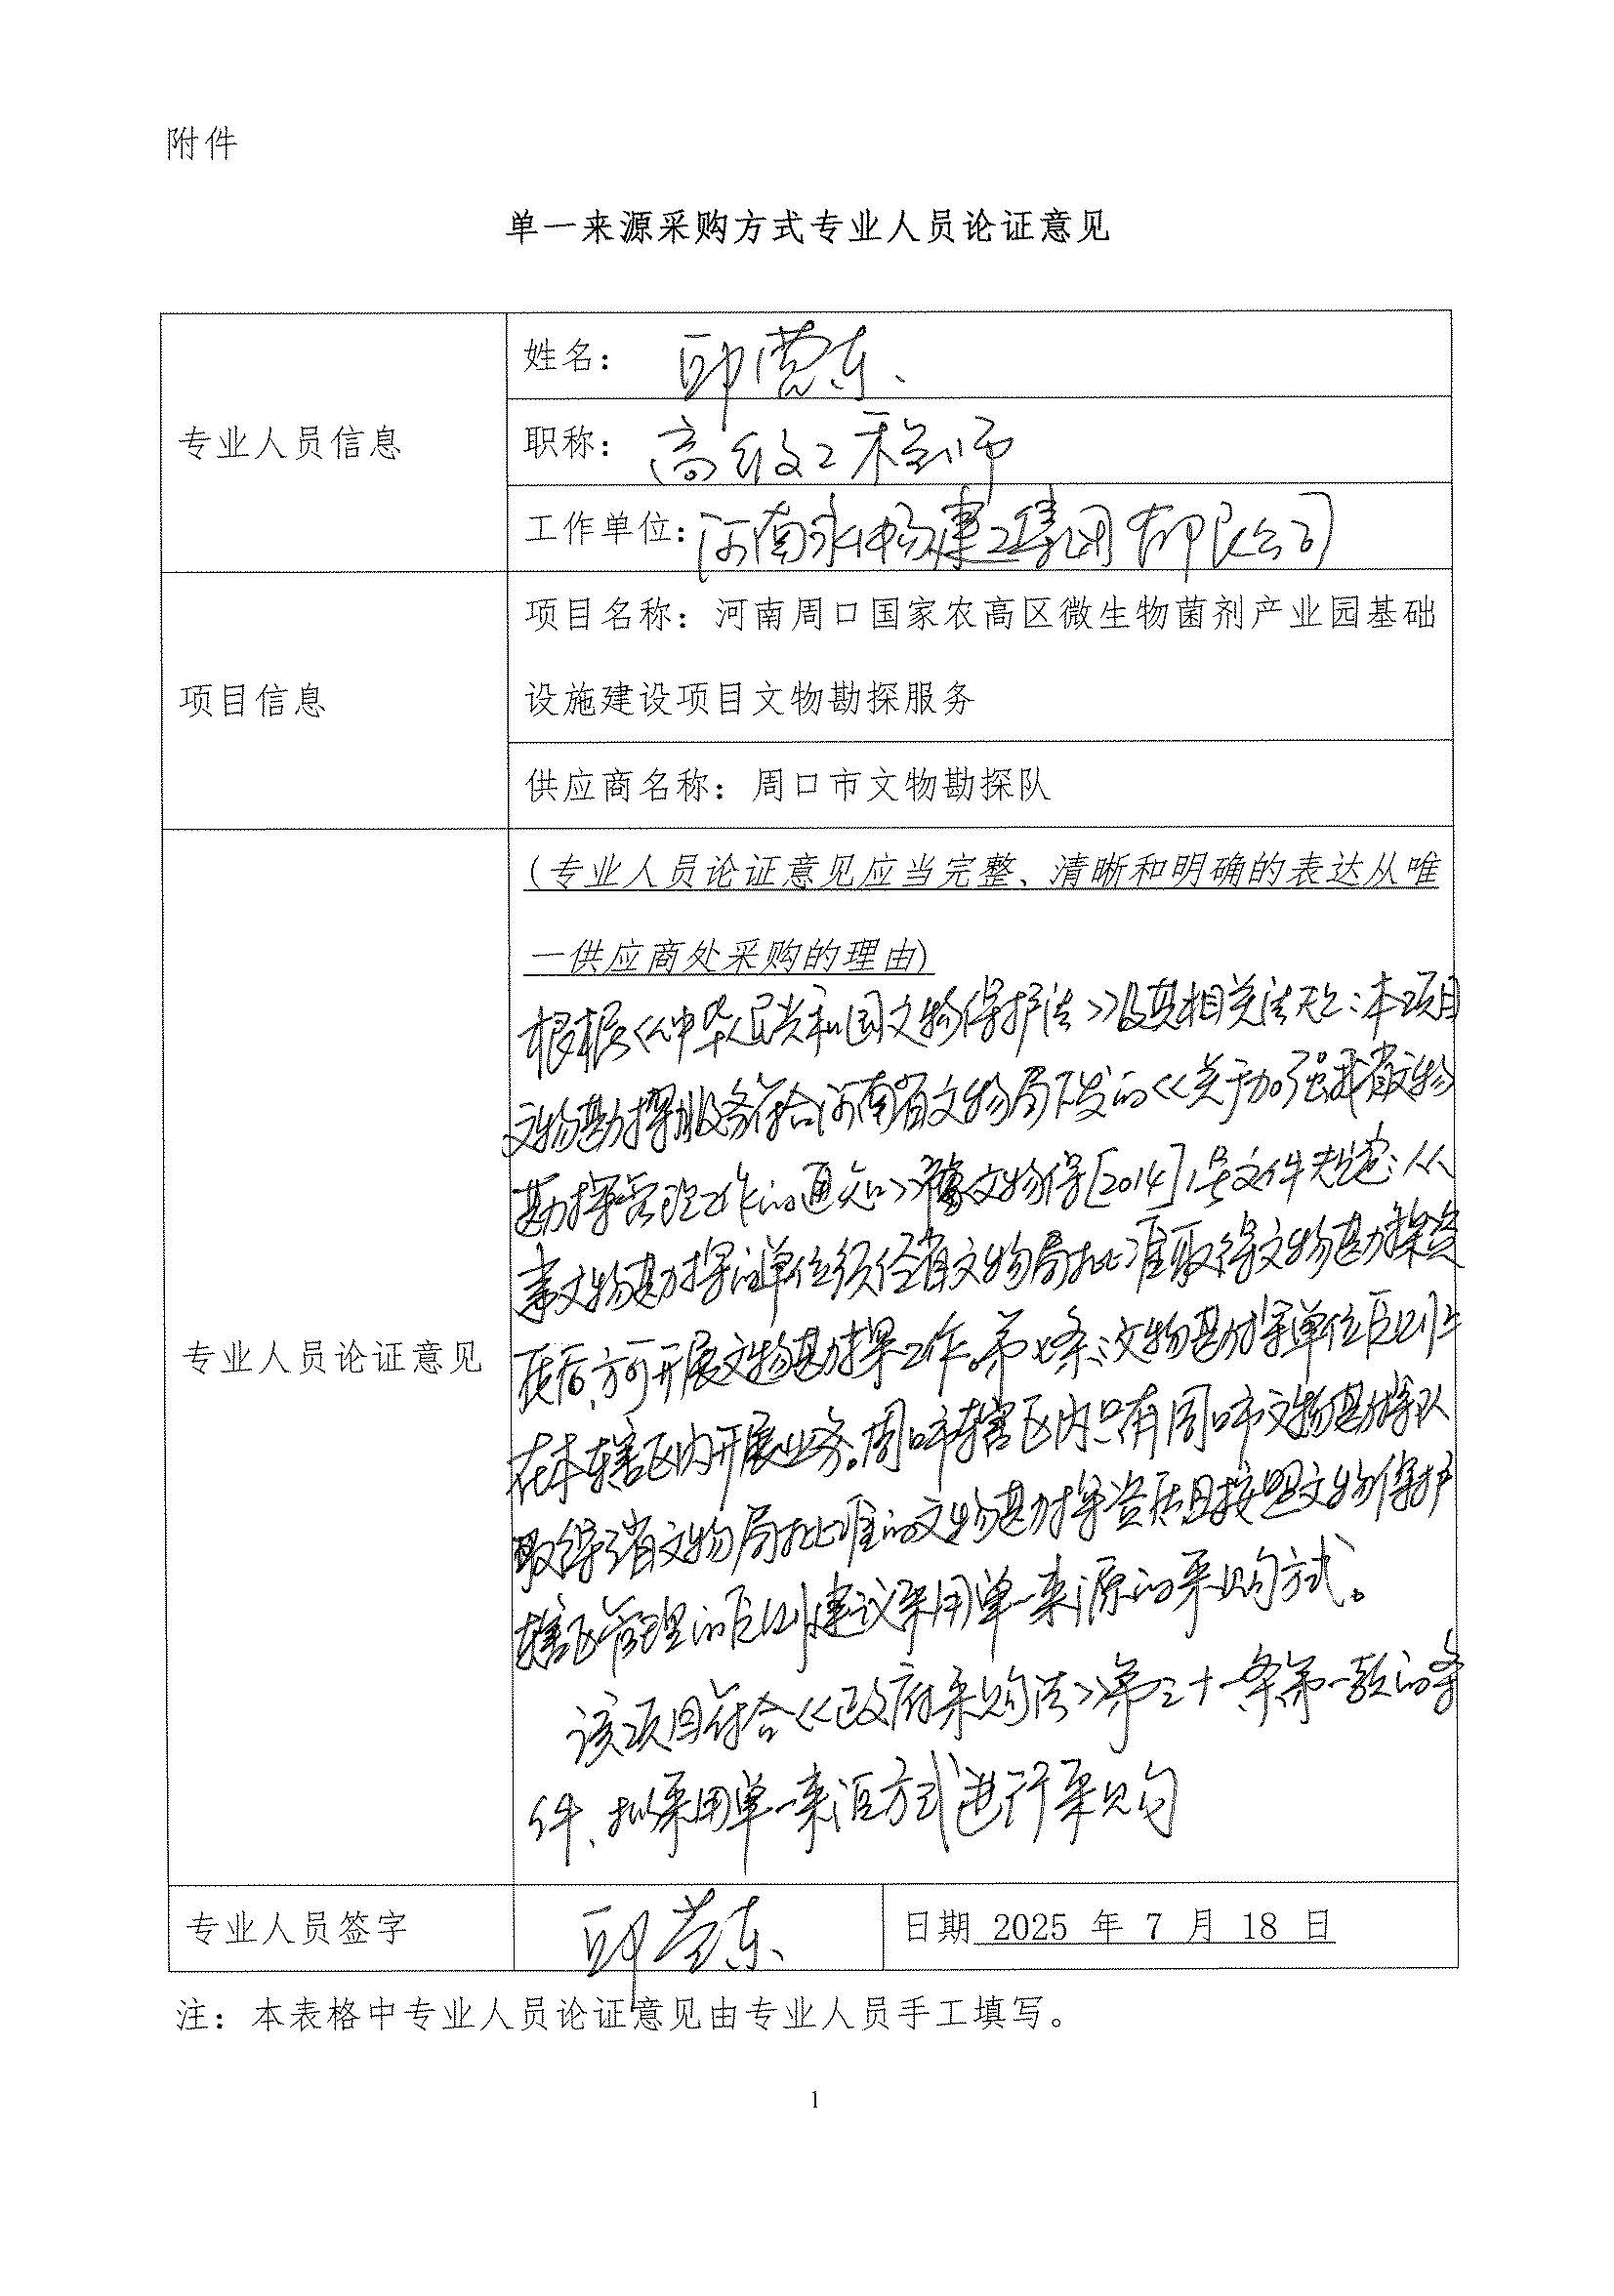 附件
单一来源采购方式专业人员论证意见
专业人员信息
姓名：
职称：高级工程师
工作单位：河南永畅建工集团有限公司
项目信息
项目名称：河南周口国家农高区微生物菌剂产业园基础
设施建设项目文物勘探服务
供应商名称：周口市文物勘探队
专业人员论证意见
(专业人员论证意见应当完整、清晰和明确的表达从唯
一供应商处采购的理由)
根据《中华人民共和国文物保护法》及其相关法规：本项目
文物勘探服务符合河南省文物局下发的《关于加强我省文物
勘探管理工作的通知》豫文物保[2014]1号文件规定：从
事文物勘探的单位须经省文物局批准取得文物勘探资
质后，方可开展文物勘探工作。第七条：文物勘探单位原则上
在本辖区内开展业务。周口市辖区内只有周口市文物勘探队
取得省文物局批准的文物勘探资质且按照文物保护
辖区管理的原则建议采用单一来源的采购方式。
该项目符合《政府采购法》第三十一条第一款的条
件、拟采用单一来源方式进行采购
专业人员签字
日期 2025 年 7 月 18 日
注：本表格中专业人员论证意见由专业人员手工填写。
1